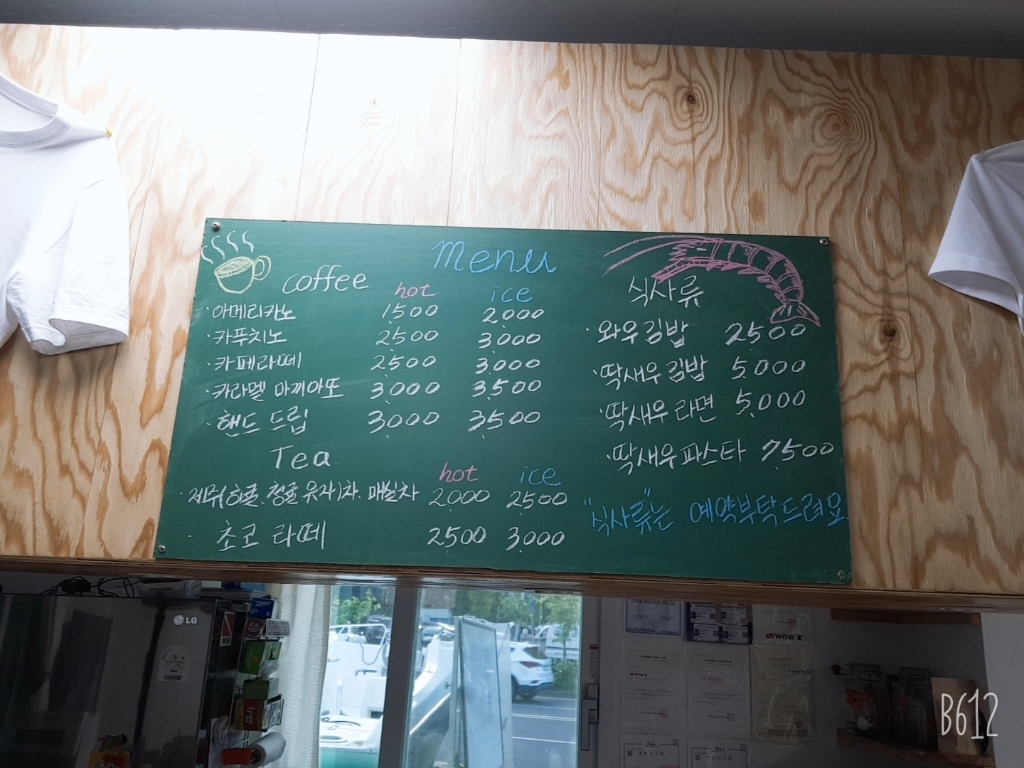 Menu
coffee hot ice
·아메리카노 1500 2000
·카푸치노 2500 3000
·카페라떼 2500 3000
·카라멜 마끼아또 3000 3500
·핸드드립 3000 3500
Tea hot ice
유자)차. 매실차 2000 2500
· 초코 라떼 2500 3000
식사류
·와우김밥 2500
·딱새우김밥 5000
·딱새우라면 5,000
·딱새우파스타 7500
"식사류"는 예약부탁드려요
LG
WOW
B612